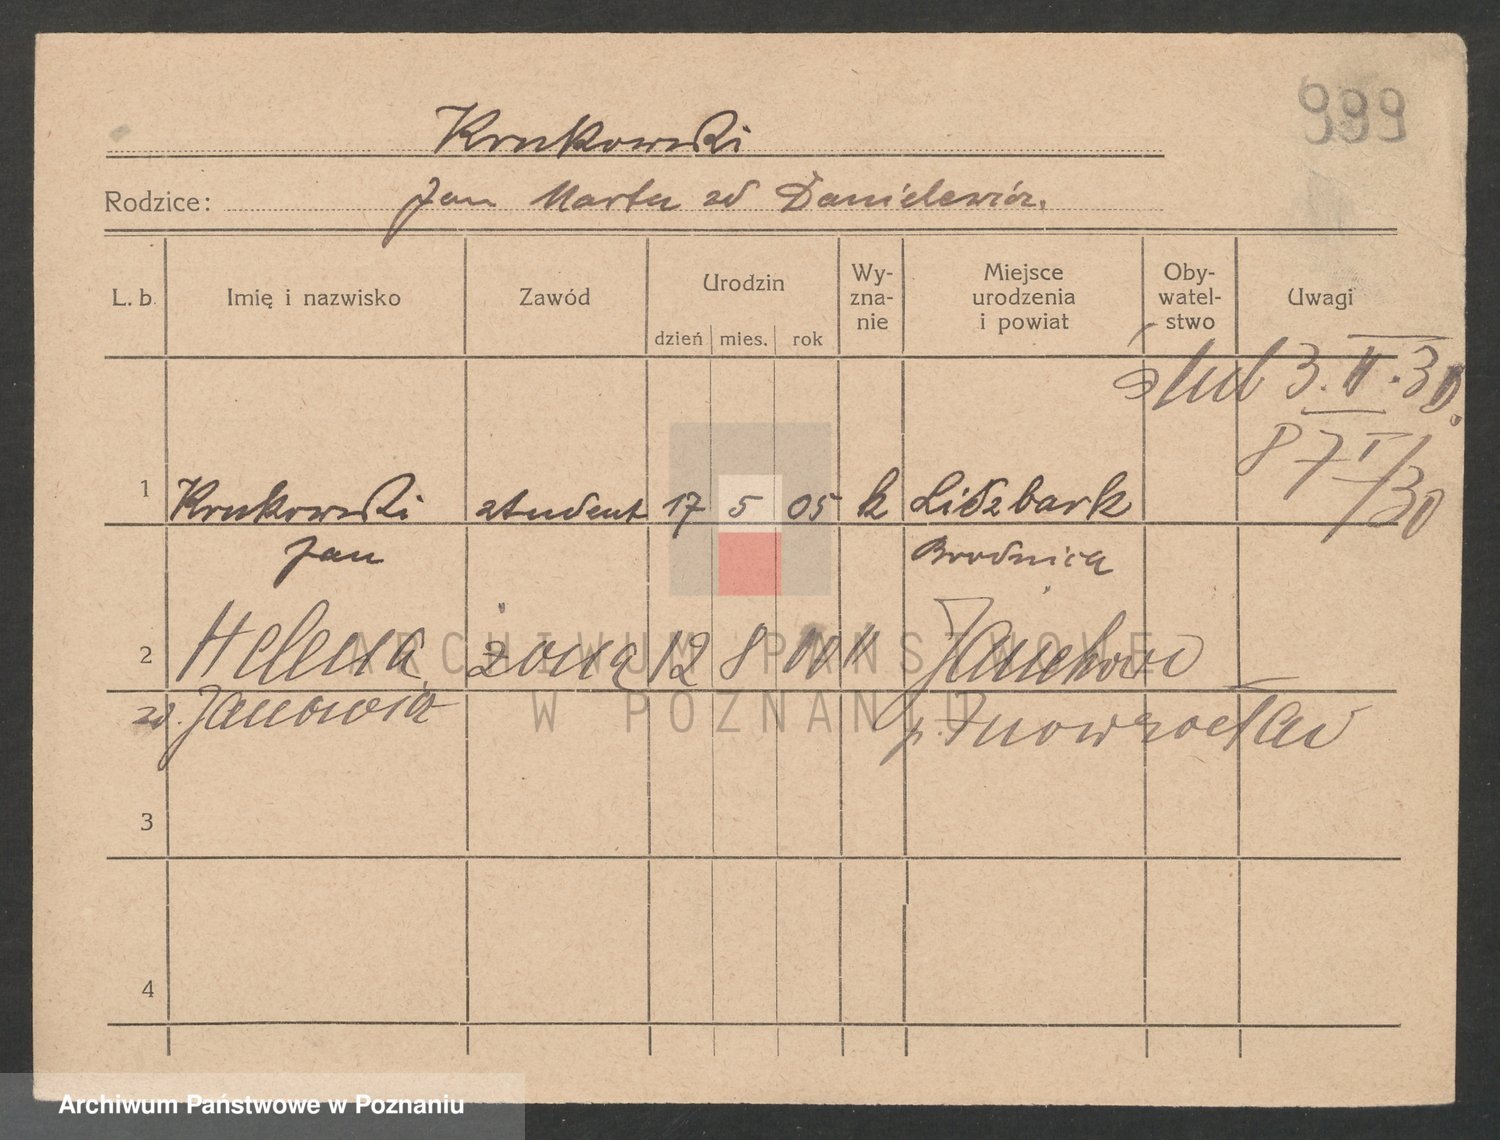 999
Krukowski
Rodzice: Jan Marta zd Danielewicz.
L. b. Imię i nazwisko Zawód Urodzin dzień mies. rok Wy-zna-nie Miejsce urodzenia i powiat Oby-watel-stwo Uwagi
ślub 3.II.30.
87 I/30
1 Krukowski student 17 5 05 k Lidzbark
Jan Brodnica
2 Helena żona 12 8 Janikowo
zd. Janowicz p. Inowrocław
3
4
ARCHIWUM PAŃSTWOWE
W POZNANIU
Archiwum Państwowe w Poznaniu